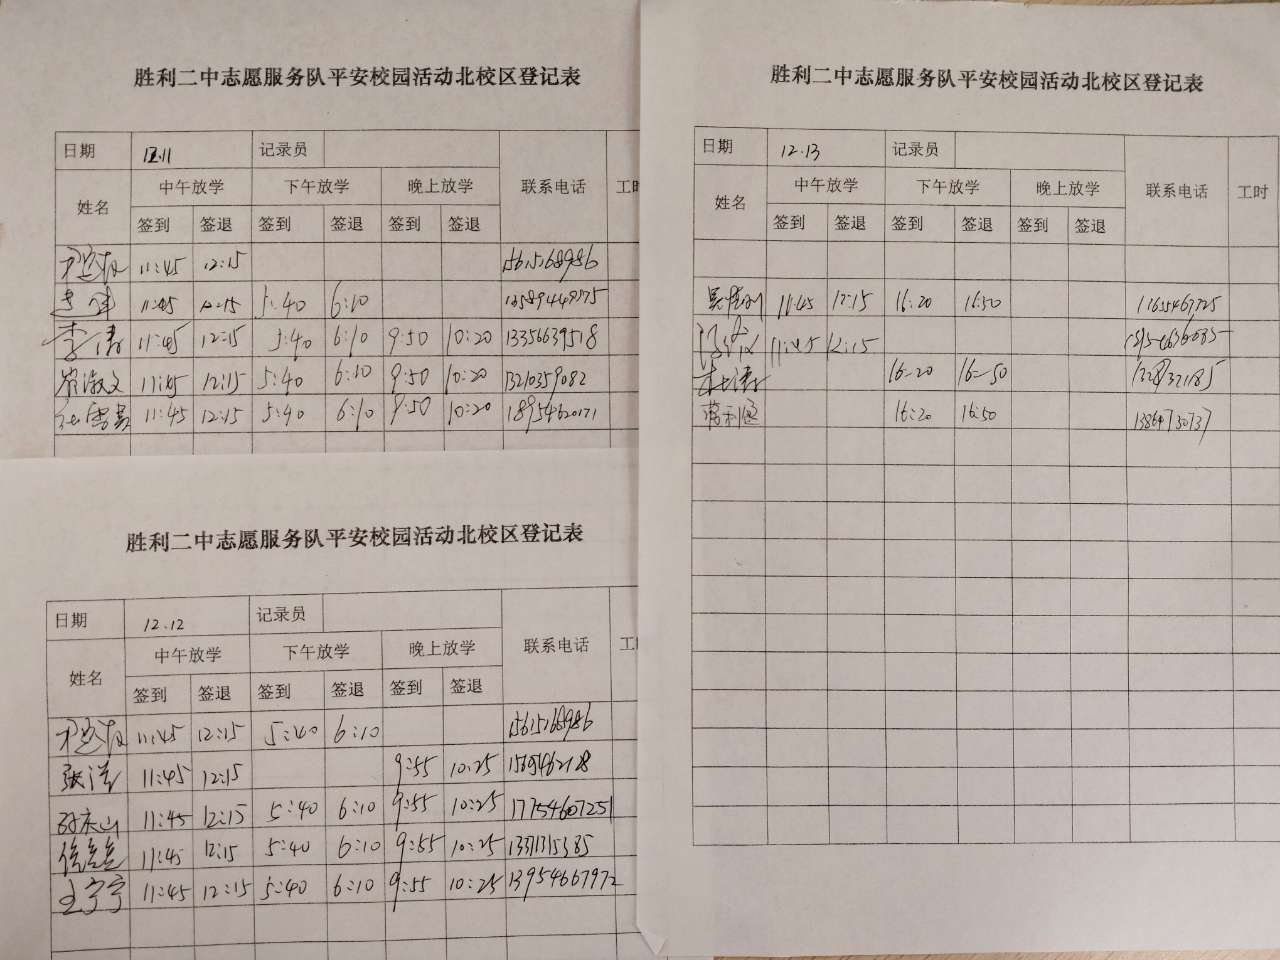 胜利二中志愿服务队平安校园活动北校区登记表
日期 12.11 记录员 联系电话
姓名 中午放学 下午放学 晚上放学
签到 签退 签到 签退 签到 签退
11:45 12:15 15615268986
11:45 12:15 5:40 6:10 13589449775
李涛 11:45 12:15 5:40 6:10 9:50 10:20 13356639518
崔淑文 11:45 12:15 5:40 6:10 9:50 10:20 13210359082
11:45 12:15 5:40 6:10 9:50 10:20 18954620171
胜利二中志愿服务队平安校园活动北校区登记表
日期 12.12 记录员 联系电话
姓名 中午放学 下午放学 晚上放学
签到 签退 签到 签退 签到 签退
11:45 12:15 5:40 6:10 15615268986
张洪 11:45 12:15 9:55 10:25
11:45 12:15 5:40 6:10 9:55 10:25 17754607251
11:45 12:15 5:40 6:10 9:55 10:25
王宁宁 11:45 12:15 5:40 6:10 9:55 10:25 13954667972
胜利二中志愿服务队平安校园活动北校区登记表
日期 12.13 记录员 联系电话 工时
姓名 中午放学 下午放学 晚上放学
签到 签退 签到 签退 签到 签退
11:45 12:15 16:20 16:50 11655467725
11:45 12:15
16-20 16-50
16:20 16:50 13864730737